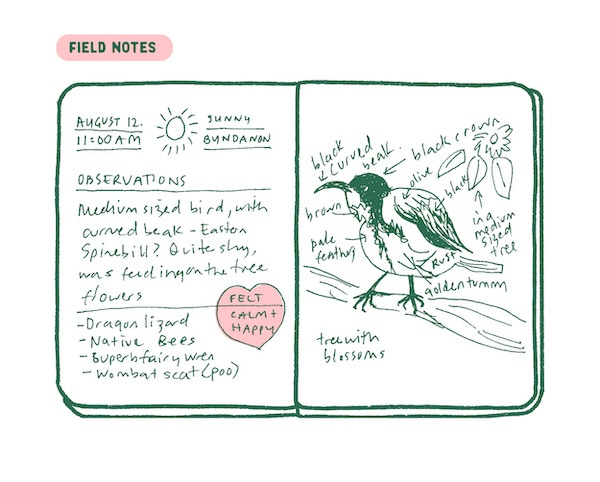 FIELD NOTES
AUGUST 12.
11:00AM
SUNNY
BUNDANON
OBSERVATIONS
Medium sized bird, with
curved beak - Eastern
Spinebill? Quite shy,
was feeding on the tree
flowers
FELT
CALM +
HAPPY
- Dragon lizard
- Native Bees
- Superb fairy wren
- Wombat scat (poo)
black
curved
beak.
black crown
olive
black
brown
pale
feathers
Rust
golden tummy
in a
medium
sized
tree
tree with
blossoms